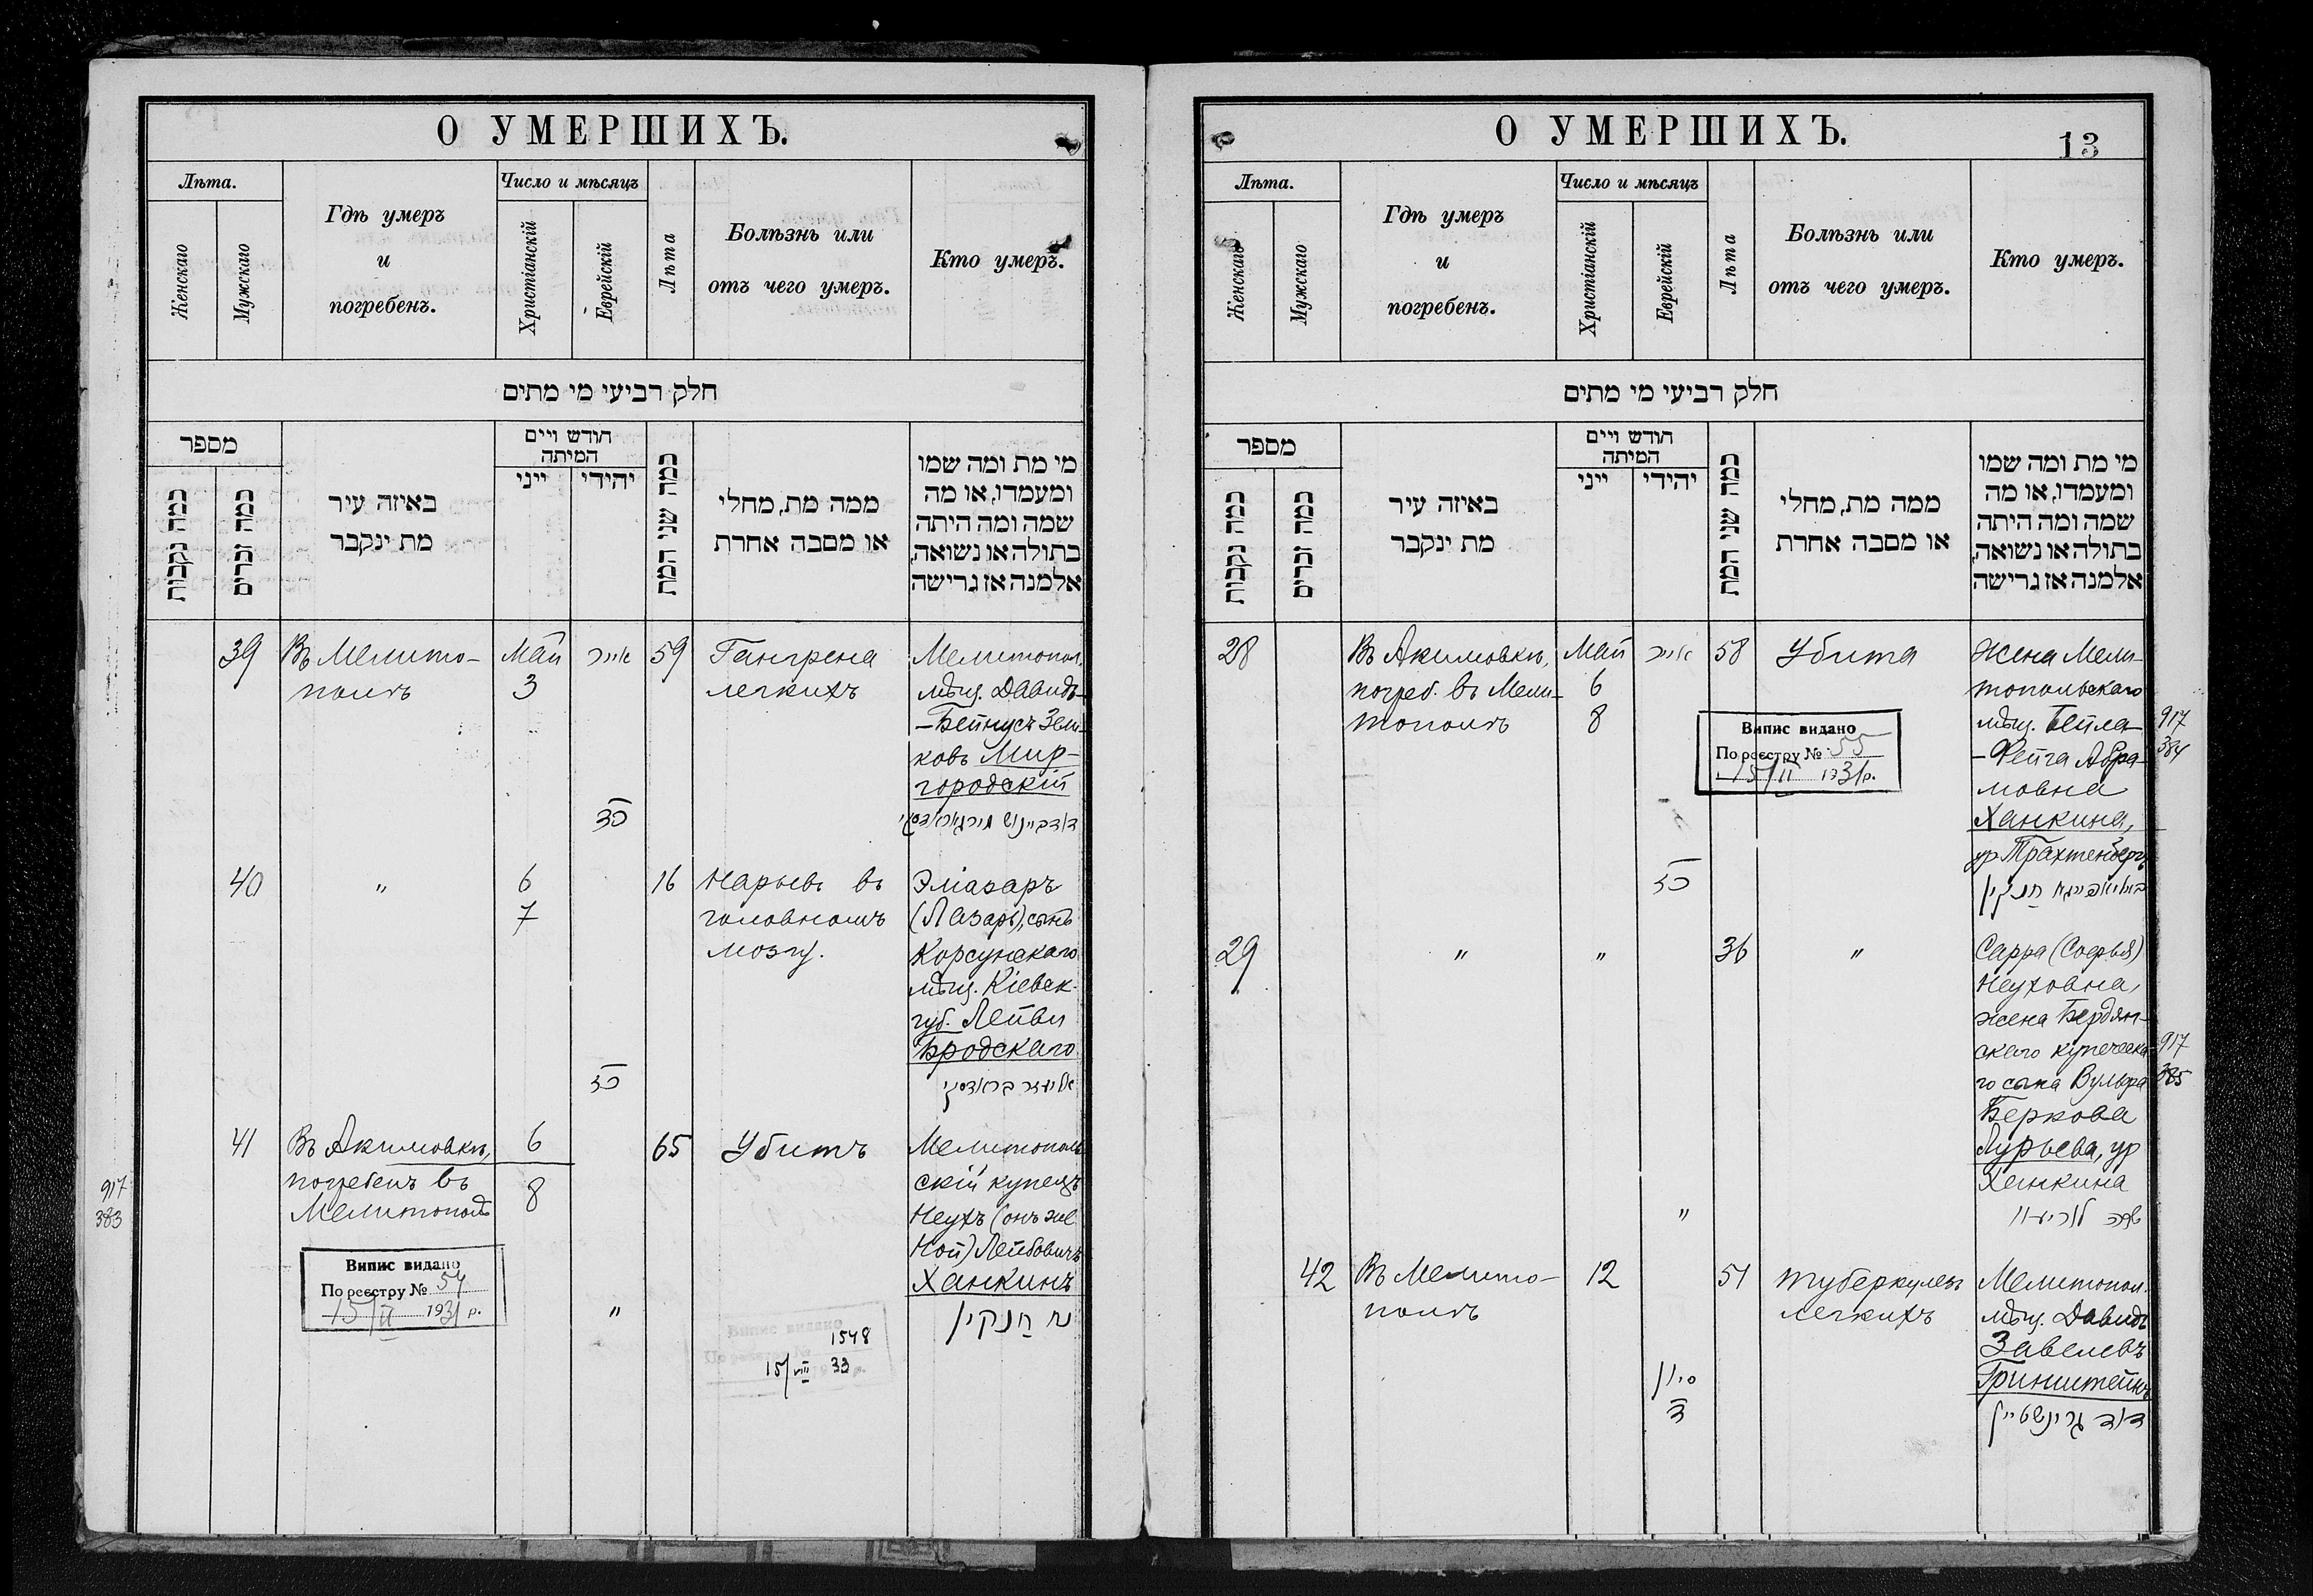 О УМЕРШИХЪ.
Лѣта.
Женскаго
Мужскаго
Гдѣ умеръ
и
погребенъ.
Число и мѣсяцъ
Христіанскій
Еврейскій
Лѣта
Болѣзнь или
отъ чего умеръ.
Кто умеръ.
חלק רביעי מי מתים
מספר
כמה נקבות
כמה זכרים
באיזה עיר
מת ינקבר
חודש ויים
המיתה
ייני
יהידי
כמה שני המת
ממה מת, מחלי
או מסבה אחרת
מי מת ומה שמו
ומעמדו, או מה
שמה ומה היתה
בתולה או נשואה,
אלמנה אז גרישה
39
Въ Мелито-
полѣ
Май
3
אייר
59
Гангрена
легкихъ
Мелитопол.
мѣщ. Давидъ-
-Бейнусъ Зели-
ковъ Мир-
городскій
40
"
6
7
16
Нарывъ въ
головномъ
мозгу.
Эліазаръ
(Лазарь), сынъ
Корсунскаго
мѣщ. Кіевск.
губ. Лейви
Бродскаго
אליעזר בראדסקי
41
Въ Акимовкѣ,
погребенъ въ
Мелитополѣ
6
8
"
65
Убитъ
Мелитополь
скій купецъ
Неухъ (онъ же
Ной) Лейбовичъ
Ханкинъ
נח חנקין
917
383
Випис видано
По реєстру № 54
15/II 1931 р.
Випис видано
1548
15/VIII 33
О УМЕРШИХЪ.
13
Лѣта.
Женскаго
Мужскаго
Гдѣ умеръ
и
погребенъ.
Число и мѣсяцъ
Христіанскій
Еврейскій
Лѣта
Болѣзнь или
отъ чего умеръ.
Кто умеръ.
חלק רביעי מי מתים
מספר
כמה נקבות
כמה זכרים
באיזה עיר
מת ינקבר
חודש ויים
המיתה
ייני
יהידי
כמה שני המת
ממה מת, מחלי
או מסבה אחרת
מי מת ומה שמו
ומעמדו, או מה
שמה ומה היתה
בתולה או נשואה,
אלמנה אז גרישה
28
Въ Акимовкѣ,
погреб. въ Мели-
тополѣ
Май
6
8
אייר
58
Убита
Жена Мели-
топольскаго
мѣщ. Бейла-
-Фейга Абра-
мовна
Ханкина,
ур. Трахтенбергъ
917
384
Випис видано
По реєстру № 55
15/II 1931 р.
29
"
"
"
36
"
Сарра (Софья)
Неуховна,
жена Бердян-
скаго купеческа-
го сына Вульфа
Беркова
Лурьева, ур
Ханкина
שרה לוריעוו
917
385
42
Въ Мелито-
полѣ
12
סיון
51
Туберкулезъ
легкихъ
Мелитопол.
мѣщ. Давидъ
Завелевъ
Гринштейнъ
דוד גרינשטיין